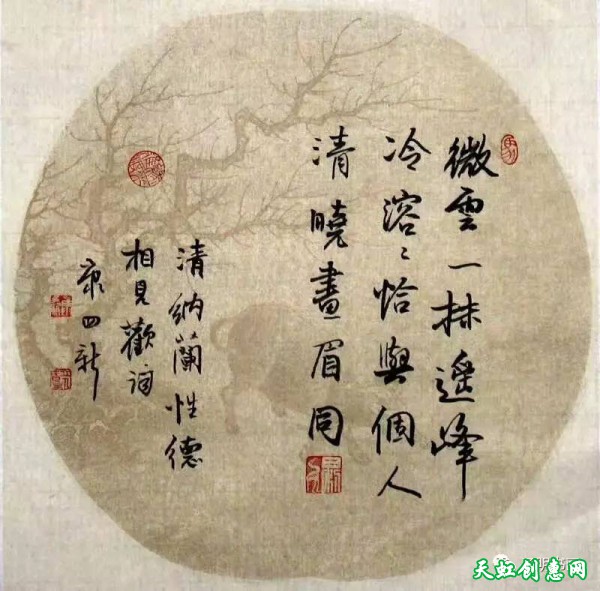 微雲一抹遥峰
冷溶〻恰與個人
清曉畫眉同
清納蘭性德
相見歡詞
康四新
天虹创意网